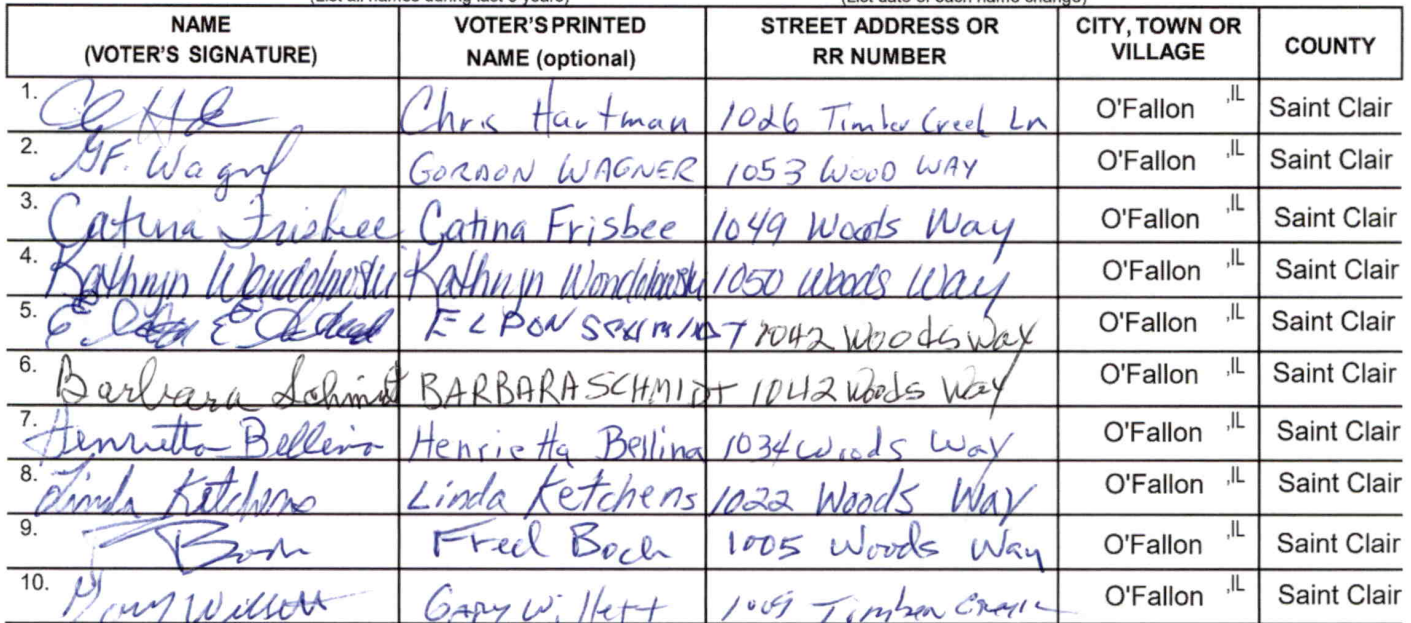 (List all names during last 3 years) (List date of each name change)
NAME (VOTER'S SIGNATURE) VOTER'S PRINTED NAME (optional) STREET ADDRESS OR RR NUMBER CITY, TOWN OR VILLAGE COUNTY
1. Chris Hartman 1026 Timber Creek Ln O'Fallon ,IL Saint Clair
2. GF. Wagner GORDON WAGNER 1053 WOOD WAY O'Fallon ,IL Saint Clair
3. Catina Frisbee Catina Frisbee 1049 Woods Way O'Fallon ,IL Saint Clair
4. Kathryn Wondolowski Kathryn Wondolowski 1050 Woods Way O'Fallon ,IL Saint Clair
5. ELDON SCHMIDT 1042 Woods Way O'Fallon ,IL Saint Clair
6. Barbara Schmidt BARBARA SCHMIDT 1042 Woods Way O'Fallon ,IL Saint Clair
7. Henrietta Bellina Henrietta Bellina 1034 Woods Way O'Fallon ,IL Saint Clair
8. Linda Ketchens Linda Ketchens 1022 Woods Way O'Fallon ,IL Saint Clair
9. Fred Boch 1005 Woods Way O'Fallon ,IL Saint Clair
10. Gary Willett GARY Willett 1009 Timber Creek O'Fallon ,IL Saint Clair